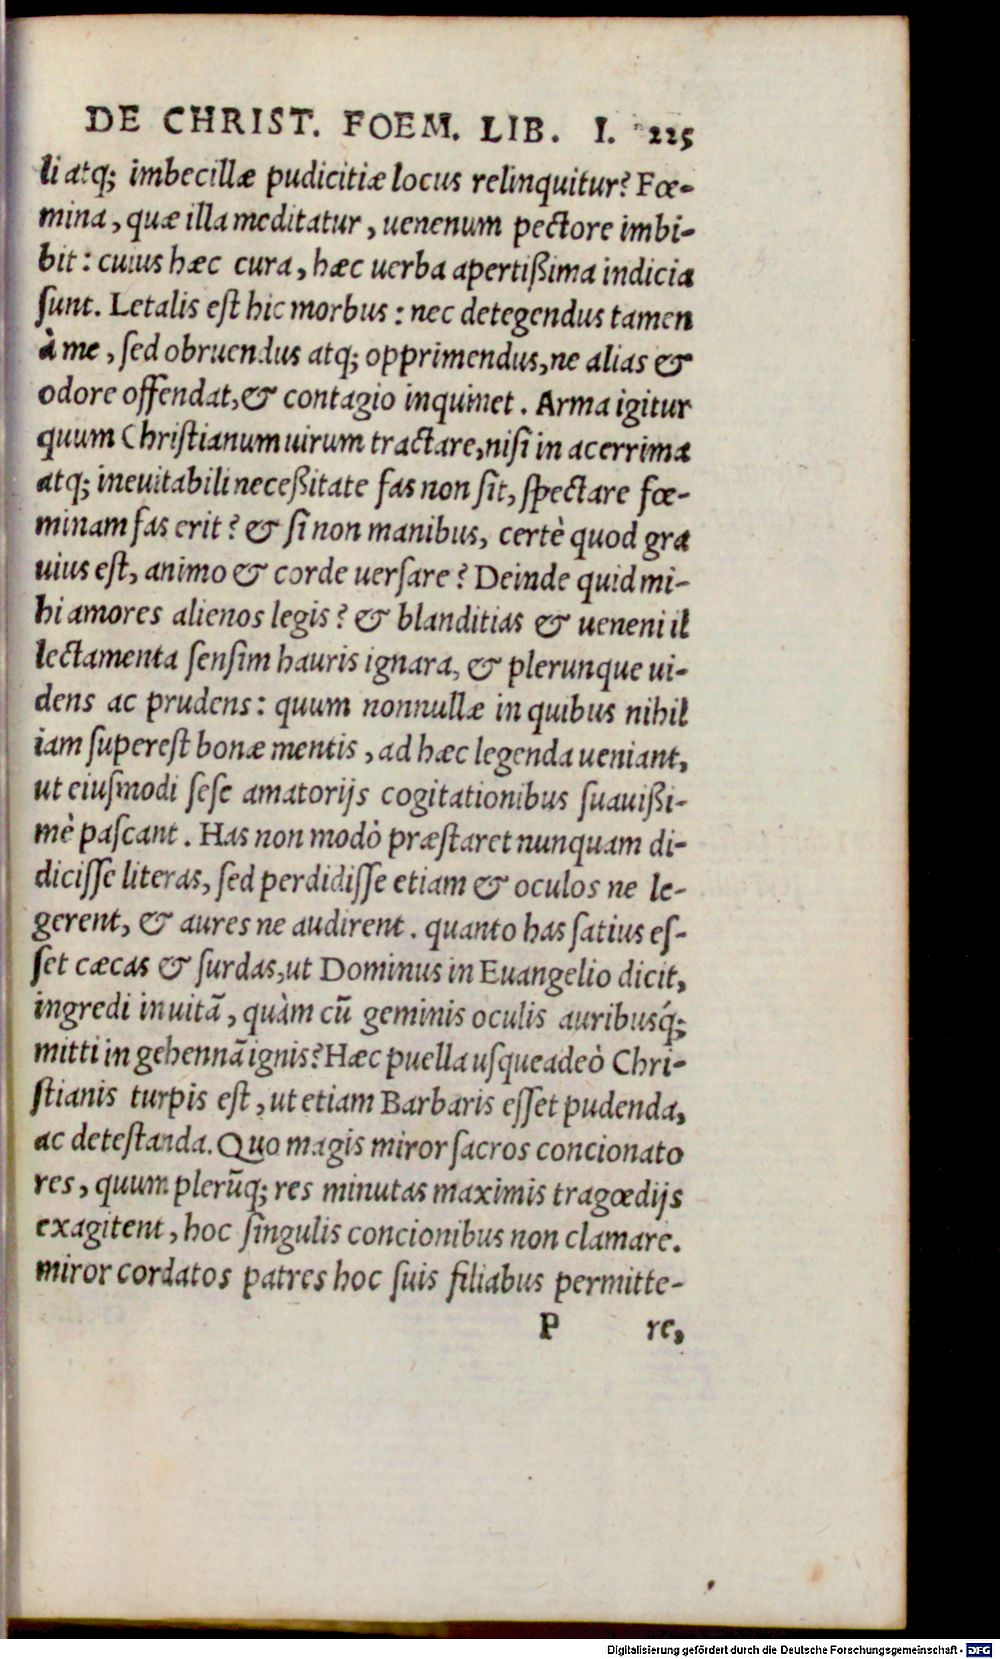 DE CHRIST. FOEM. LIB. I. 225
li atq; imbecillæ pudicitiæ locus relinquitur? Fœ-
mina, quæ illa meditatur, uenenum pectore imbi-
bit: cuius hæc cura, hæc uerba apertißima indicia
sunt. Letalis est hic morbus: nec detegendus tamen
à me, sed obruendus atq; opprimendus, ne alias &
odore offendat, & contagio inquinet. Arma igitur
quum Christianum uirum tractare, nisi in acerrima
atq; ineuitabili neceßitate fas non sit, spectare fœ-
minam fas erit? & si non manibus, certè quod gra
uius est, animo & corde uersare? Deinde quid mi-
hi amores alienos legis? & blanditias & ueneni il
lectamenta sensim hauris ignara, & plerunque ui-
dens ac prudens: quum nonnullæ in quibus nihil
iam superest bonæ mentis, ad hæc legenda ueniant,
ut eiusmodi sese amatorijs cogitationibus suauißi-
mè pascant. Has non modò præstaret nunquam di-
dicisse literas, sed perdidisse etiam & oculos ne le-
gerent, & aures ne audirent. quanto has satius es-
set cæcas & surdas, ut Dominus in Euangelio dicit,
ingredi in uitã, quàm cũ geminis oculis auribusq́;
mitti in gehennã ignis? Hæc puella usqueadeò Chri-
stianis turpis est, ut etiam Barbaris esset pudenda,
ac detestanda. Quo magis miror sacros concionato
res, quum plerũq; res minutas maximis tragœdijs
exagitent, hoc singulis concionibus non clamare.
miror cordatos patres hoc suis filiabus permitte-
P re,
Digitalisierung gefördert durch die Deutsche Forschungsgemeinschaft - DFG